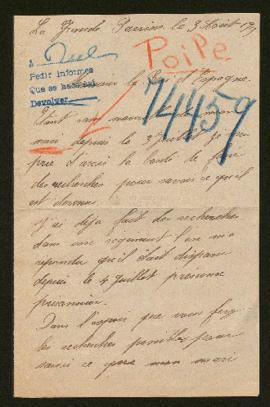 La Grande Paroisse, le 3 Août 19
Poipe
Pedir informes
Que se haga
Devolver
74459
Monsieur le Roi d'Espagne.
Etant sans nouvelles de mon
mari depuis le 3 Juillet je vous
prie d'avoir la bonté de faire
des recherches pour savoir ce qu'il
est devenu.
J'ai déjà fait des recherches
dans son régiment l'on m'a
répondu qu'il était disparu
depuis le 4 Juillet présumé
prisonnier.
Dans l'espoir que vous ferez
les recherches possibles pour
savoir ce que mon mari